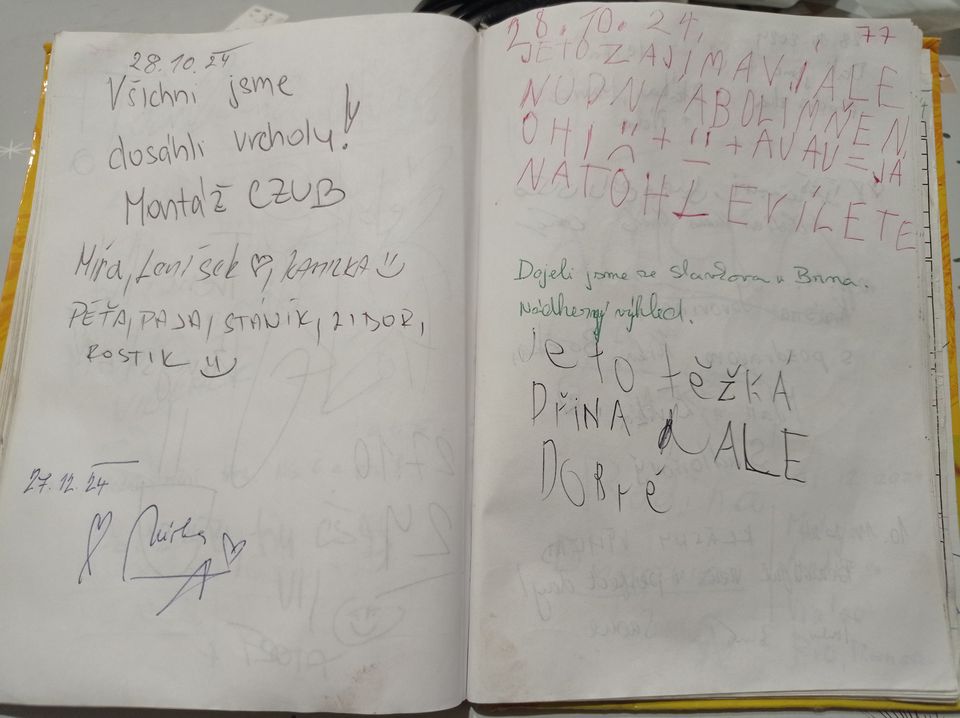 28.10.24
Všichni jsme
dosáhli vrcholu!
Montáž CZUB
Míra, Leníšek ♡, KAMILKA
PÉŤA, PAJA, STÁNÍK, LIBOR,
ROSTIK
27.12.24
Mirka
77
28.10.24,
JETO ZAJÍMAVÍ ALE
NUDNÍ ABOLÍMŇEN
OHI + + AVAV = JÁ
NATOHLEVÍLETE
Dojeli jsme ze Slavkova u Brna.
Nádherný výhled.
Je TO těžKÁ
DŘiNA ALE
DOBré